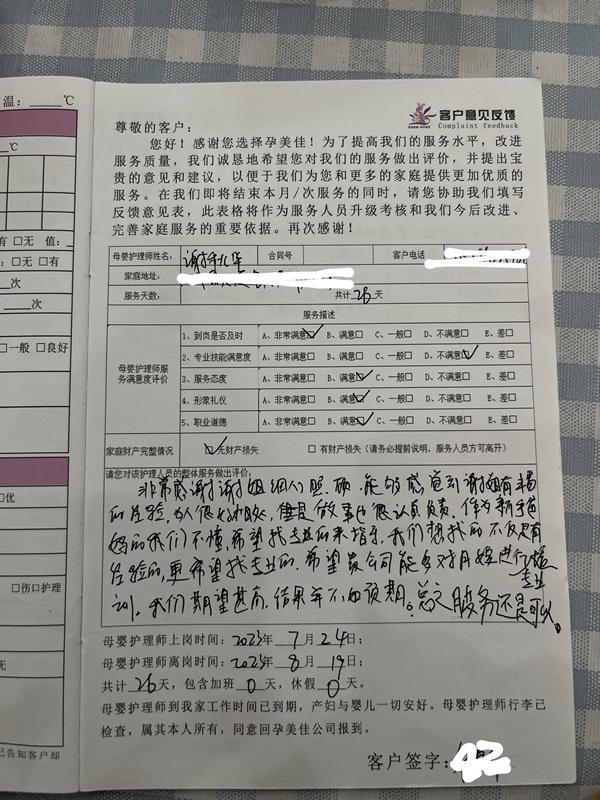 温：____℃
客户意见反馈
Complaint feedback
尊敬的客户：
您好！感谢您选择孕美佳！为了提高我们的服务水平，改进
服务质量，我们诚恳地希望您对我们的服务做出评价，并提出宝
贵的意见和建议，以便于我们为您和更多的家庭提供更加优质的
服务。在我们即将结束本月/次服务的同时，请您协助我们填写
反馈意见表，此表格将作为服务人员升级考核和我们今后改进、
完善家庭服务的重要依据。再次感谢！
母婴护理师姓名： 谢 华 合同号 客户电话
家庭地址：
服务天数： 共计26天
服务描述
母婴护理师服务满意度评价
1、到岗是否及时 A、非常满意☑ B、满意□ C、一般□ D、不满意□ E、差□
2、专业技能满意度 A、非常满意□ B、满意□ C、一般□ D、不满意☑ E、差□
3、服务态度 A、非常满意□ B、满意☑ C、一般□ D、不满意□ E、差□
4、形象礼仪 A、非常满意□ B、满意☑ C、一般□ D、不满意□ E、差□
5、职业道德 A、非常满意□ B、满意☑ C、一般□ D、不满意□ E、差□
家庭财产完整情况 ☑无财产损失 □有财产损失（请务必提前说明，服务人员方可离开）
请您对该护理人员的整体服务做出评价：
非常感谢谢姐 照顾，能够感觉到谢姐有丰富
的经验，为人很好相处，但是做事也很认真负责，作为新手爸
妈的我们不懂，希望找专业的来指导，我们想找的不仅是有
经验的，更希望找专业的，希望贵公司能多对月嫂进行专业培
训，我们期望甚高，结果并不如预期。总之服务还是可以。
母婴护理师上岗时间：2023年7月24日；
母婴护理师离岗时间：2023年8月19日；
共计26天，包含加班0天，休假0天。
母婴护理师到我家工作时间已到期，产妇与婴儿一切安好。母婴护理师行李已
检查，属其本人所有，同意回孕美佳公司报到。
客户签字：
有 □无 值：
：□无 □有
次
____次
一般 □良好
□优
□伤口护理
无
已告知客户却